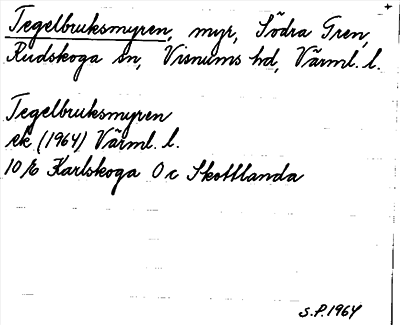 Tegelbruksmyren, myr, Södra Gren,
Rudskoga sn, Visnums hd, Värml. l.
Tegelbruksmyren
ek (1964) Värml. l.
10 E Karlskoga O c Skottlanda
S.P. 1964